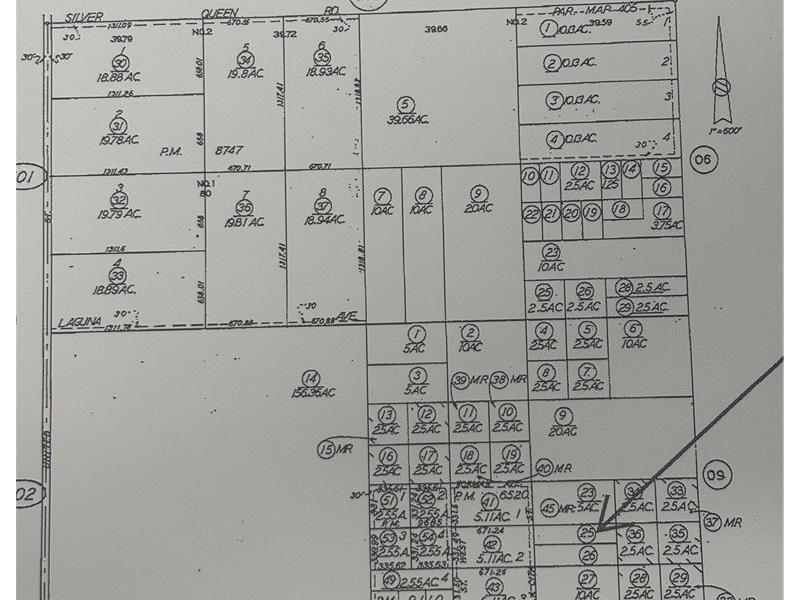 SILVER QUEEN RD.
1311.09 670.55 670.55 PAR. MAP 405
30' 39.79 NO.2 39.72 30' 39.66 NO.2 39.59 55' 1
30' 30' 1 5 6 1 0.13AC.
30 34 35
18.88AC. 19.8AC. 18.93AC. 2 0.13AC. 2
658.01 1317.41 1318.82
1311.26 5 3 0.13AC. 3
2 39.66AC.
31 658 4 0.13AC. 4
19.78AC. 30'
P.M. 8747 1"=600'
1311.43 670.71 670.71 06
01 NO.1 10 11 12 13 14 15
3 80 7 8 7 8 9 2.5AC 1.25 16
32 36 37 10AC 10AC 20AC
19.79AC. 658 19.81AC. 18.94AC. 22 21 20 19 18 17
3.75AC
1311.6 1317.41 1318.81 23
4 10AC
33
18.89AC. 658.01 25 26 28 2.5AC.
30 2.5AC 2.5AC. 29 2.5AC.
LAGUNA 30' AVE.
1311.78 670.88 670.88
1 2 4 5 6
5AC 10AC 2.5AC 2.5AC. 10AC
14 3 39 MR 38 MR 8 7
156.36AC 5AC 2.5AC 2.5AC.
13 12 11 10 9
2.5AC 2.5AC. 2.5AC. 2.5AC. 20AC
15 MR
16 17 18 19
2.5AC 2.5AC 2.5AC 2.5AC.
40 MR 09
02 30' 51 1 52 2 P.M. 6520 23 33
2.55A 2.55A 41 45 MR 5AC. 2.5AC. 2.5AC
P.M. 9685 5.11AC. 1 37 MR
53 3 54 4 671.24 25 36 35
2.55A 2.55A. 42 26 2.5AC. 2.5AC.
335.62 335.63 WEST 5.11AC. 2
49 2.55AC 4 ST. 671.26 27 28 29
43 10AC 2.5AC. 2.5AC.